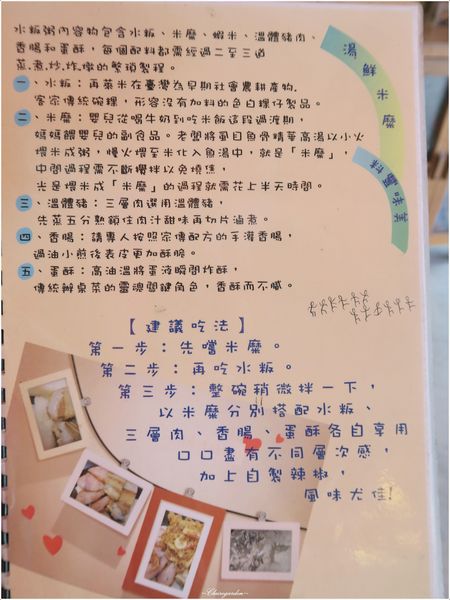 湯鮮米糜
美味霸味
水粄粥內容物包含水粄、米糜、蝦米、溫體豬肉、
香腸和蛋酥，每個配料都需經過二至三道
蒸.煮.炒.炸.燉的繁瑣製程。
一、水粄：再萊米在臺灣為早期社會農耕產物.
客宗傳統碗粿，形容沒有加料的色白粿仔製品。
二、米糜：嬰兒從喝牛奶到吃米飯這段過渡期，
媽媽餵嬰兒的副食品。老闆將虱目魚骨精華高湯以小火
煨米成粥，慢火煨至米化入魚湯中，就是「米糜」，
中間過程需不斷攪拌以免燒焦，
光是煨米成「米糜」的過程就需花上半天時間。
三、溫體豬：三層肉選用溫體豬，
先蒸五分熟鎖住肉汁甜味再切片滷煮。
四、香腸：請專人按照宗傳配方的手灌香腸，
過油小煎後表皮更加酥脆。
五、蛋酥：高油溫將蛋液瞬間炸酥，
傳統辦桌菜的靈魂關鍵角色，香酥而不膩。
【建議吃法】
第一步：先嚐米糜。
第二步：再吃水粄。
第三步：整碗稍微拌一下，
以米糜分別搭配水粄、
三層肉、香腸、蛋酥各自享用
口口盡有不同層次感，
加上自製辣椒，
風味尤佳!
~Choregarden~